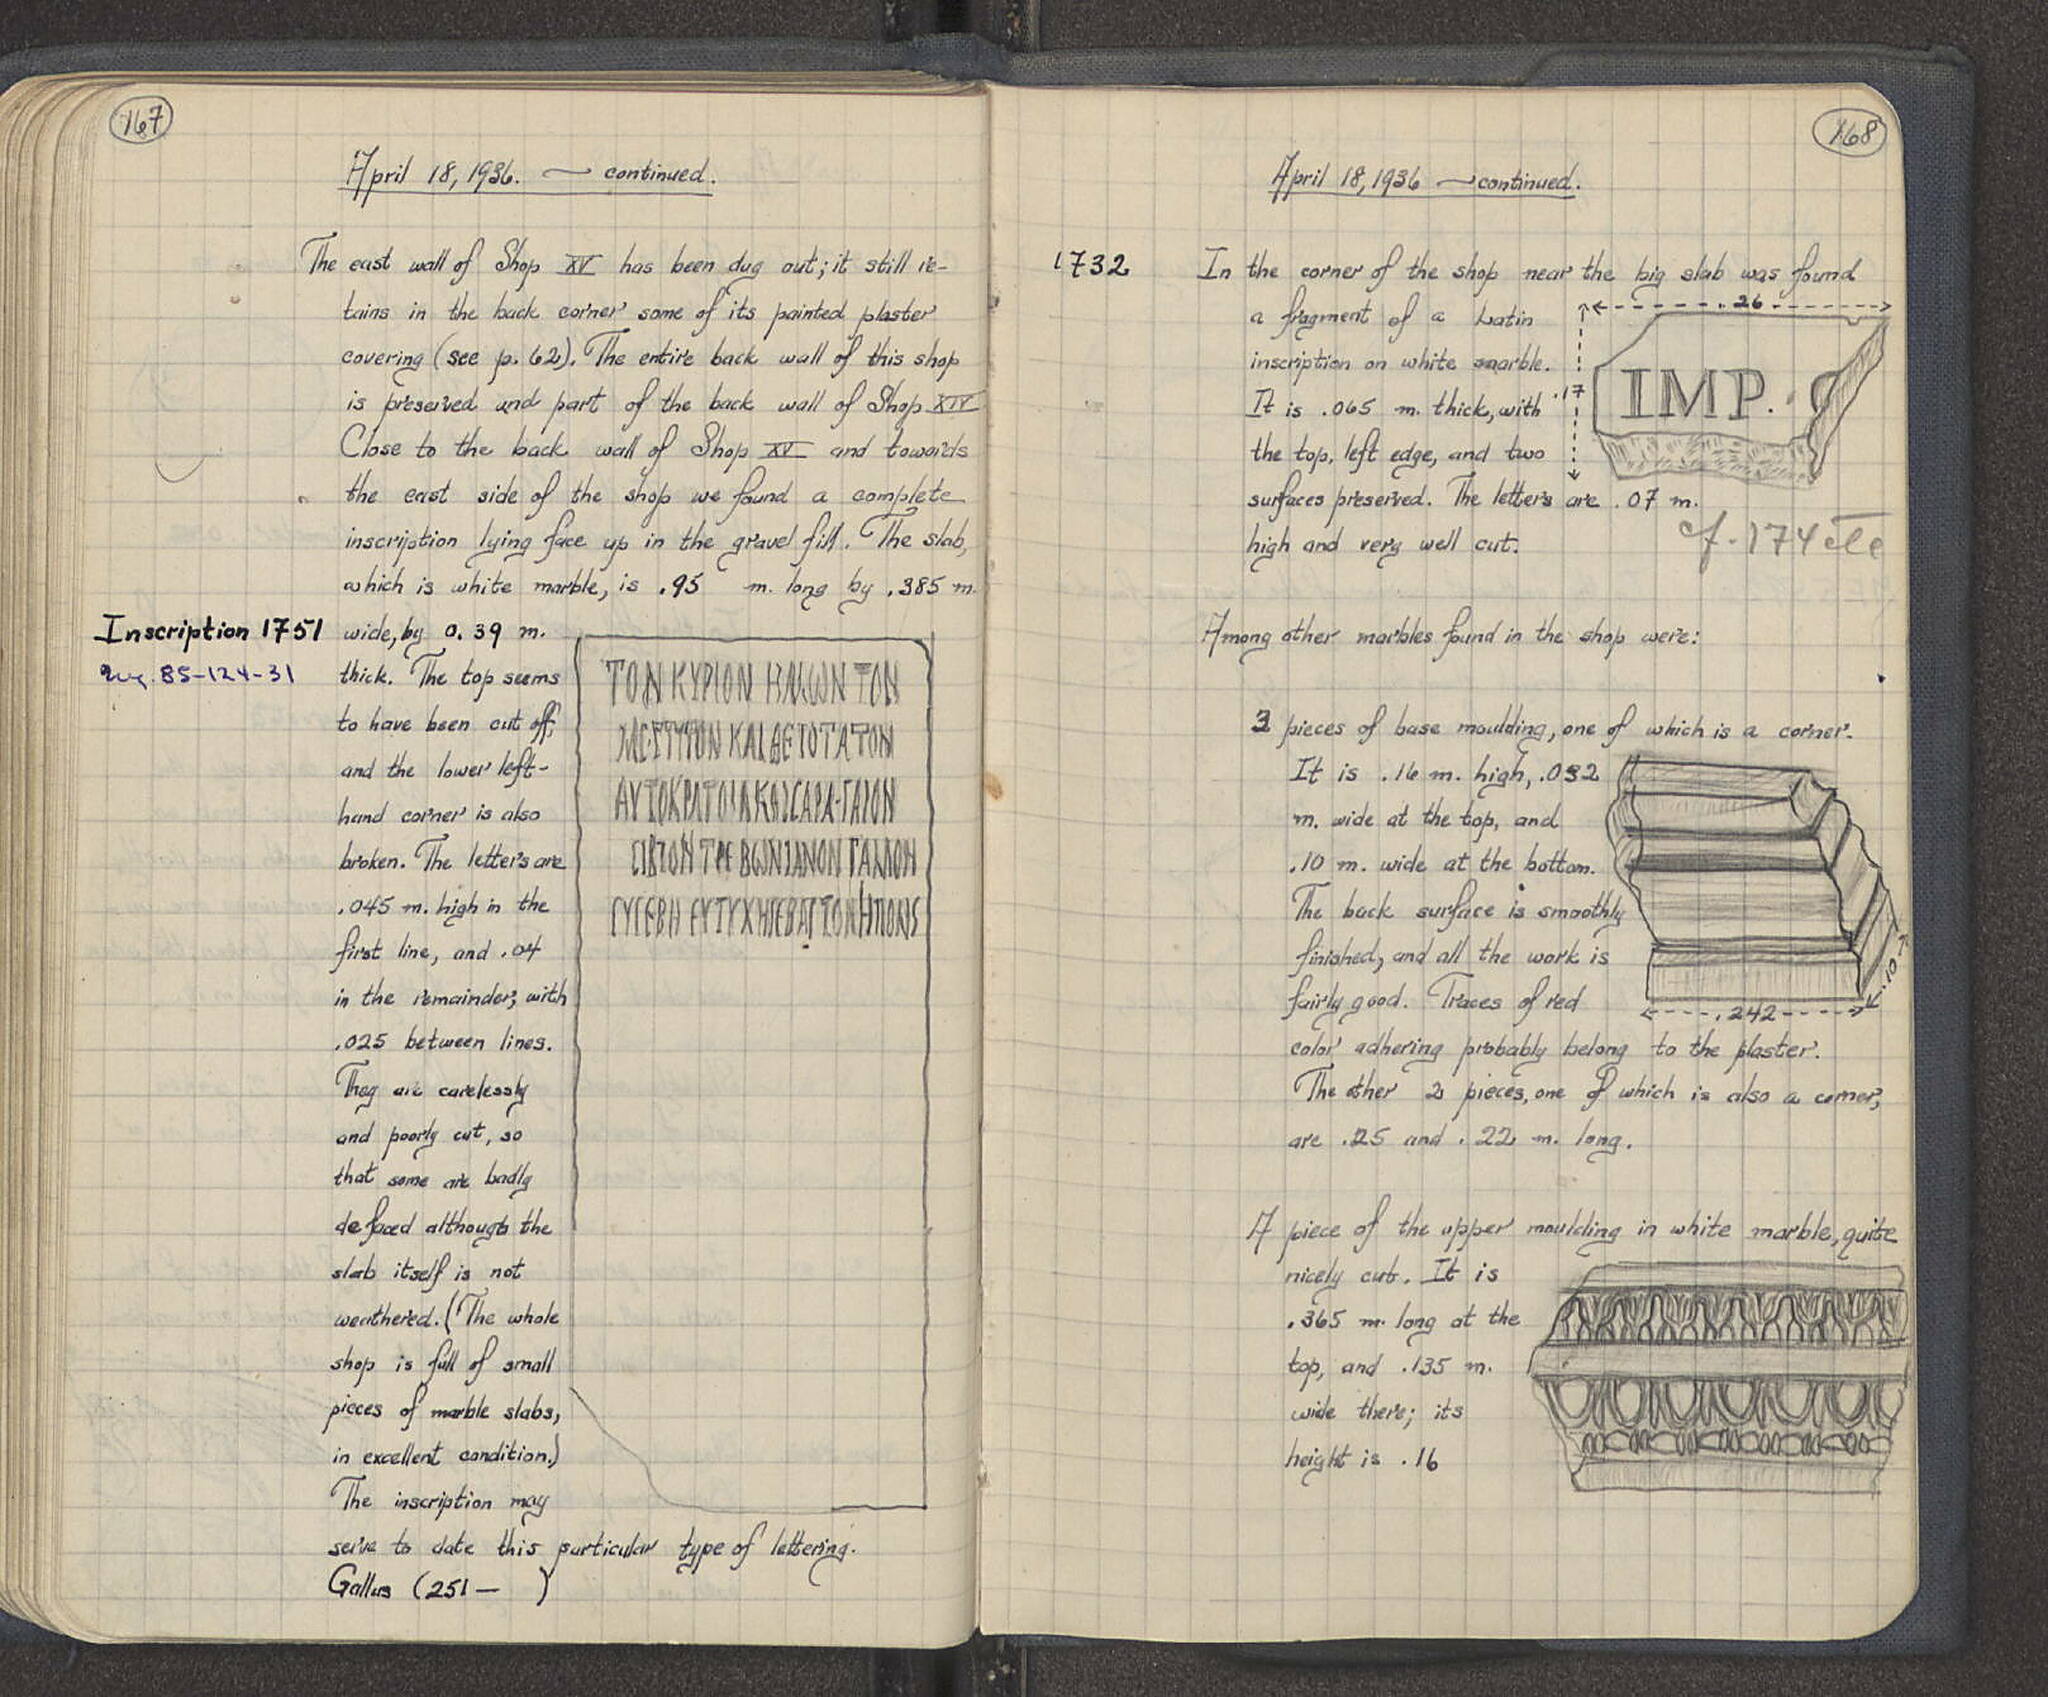 167
April 18, 1936. — continued.
The east wall of Shop XV has been dug out; it still re-
tains in the back corner some of its painted plaster
covering (see p. 62). The entire back wall of this shop
is preserved and part of the back wall of Shop XIV
Close to the back wall of Shop XV and towards
the east side of the shop we found a complete
inscription lying face up in the gravel fill. The slab,
which is white marble, is .95 m. long by .385 m.
Inscription 1751
85-124-31
wide, by 0.39 m.
thick. The top seems
to have been cut off,
and the lower left-
hand corner is also
broken. The letters are
.045 m. high in the
first line, and .04
in the remainder, with
.025 between lines.
They are carelessly
and poorly cut, so
that some are badly
defaced although the
slab itself is not
weathered. (The whole
shop is full of small
pieces of marble slabs,
in excellent condition.)
The inscription may
serve to date this particular type of lettering.
Gallus (251 — )
ΤΟΝ ΚΥΡΙΟΝ ΗΜΩΝ ΤΟΝ
ΚΑΙ ΘΕΙΟΤΑΤΟΝ
ΚΑΙΣΑΡΑ·ΓΑΙΟΝ
ΓΑΛΛΟΝ
168
April 18, 1936 — continued.
1732
In the corner of the shop near the big slab was found
a fragment of a Latin
inscription on white marble.
It is .065 m. thick, with
the top, left edge, and two
surfaces preserved. The letters are .07 m.
high and very well cut.
.26
.17
IMP. C
cf. 174
Among other marbles found in the shop were:
3 pieces of base moulding, one of which is a corner.
It is .16 m. high, .032
m. wide at the top, and
.10 m. wide at the bottom.
The back surface is smoothly
finished, and all the work is
fairly good. Traces of red
color adhering probably belong to the plaster.
The other 2 pieces, one of which is also a corner,
are .25 and .22 m. long.
.10
.242
A piece of the upper moulding in white marble, quite
nicely cut. It is
.365 m. long at the
top, and .135 m.
wide there; its
height is .16